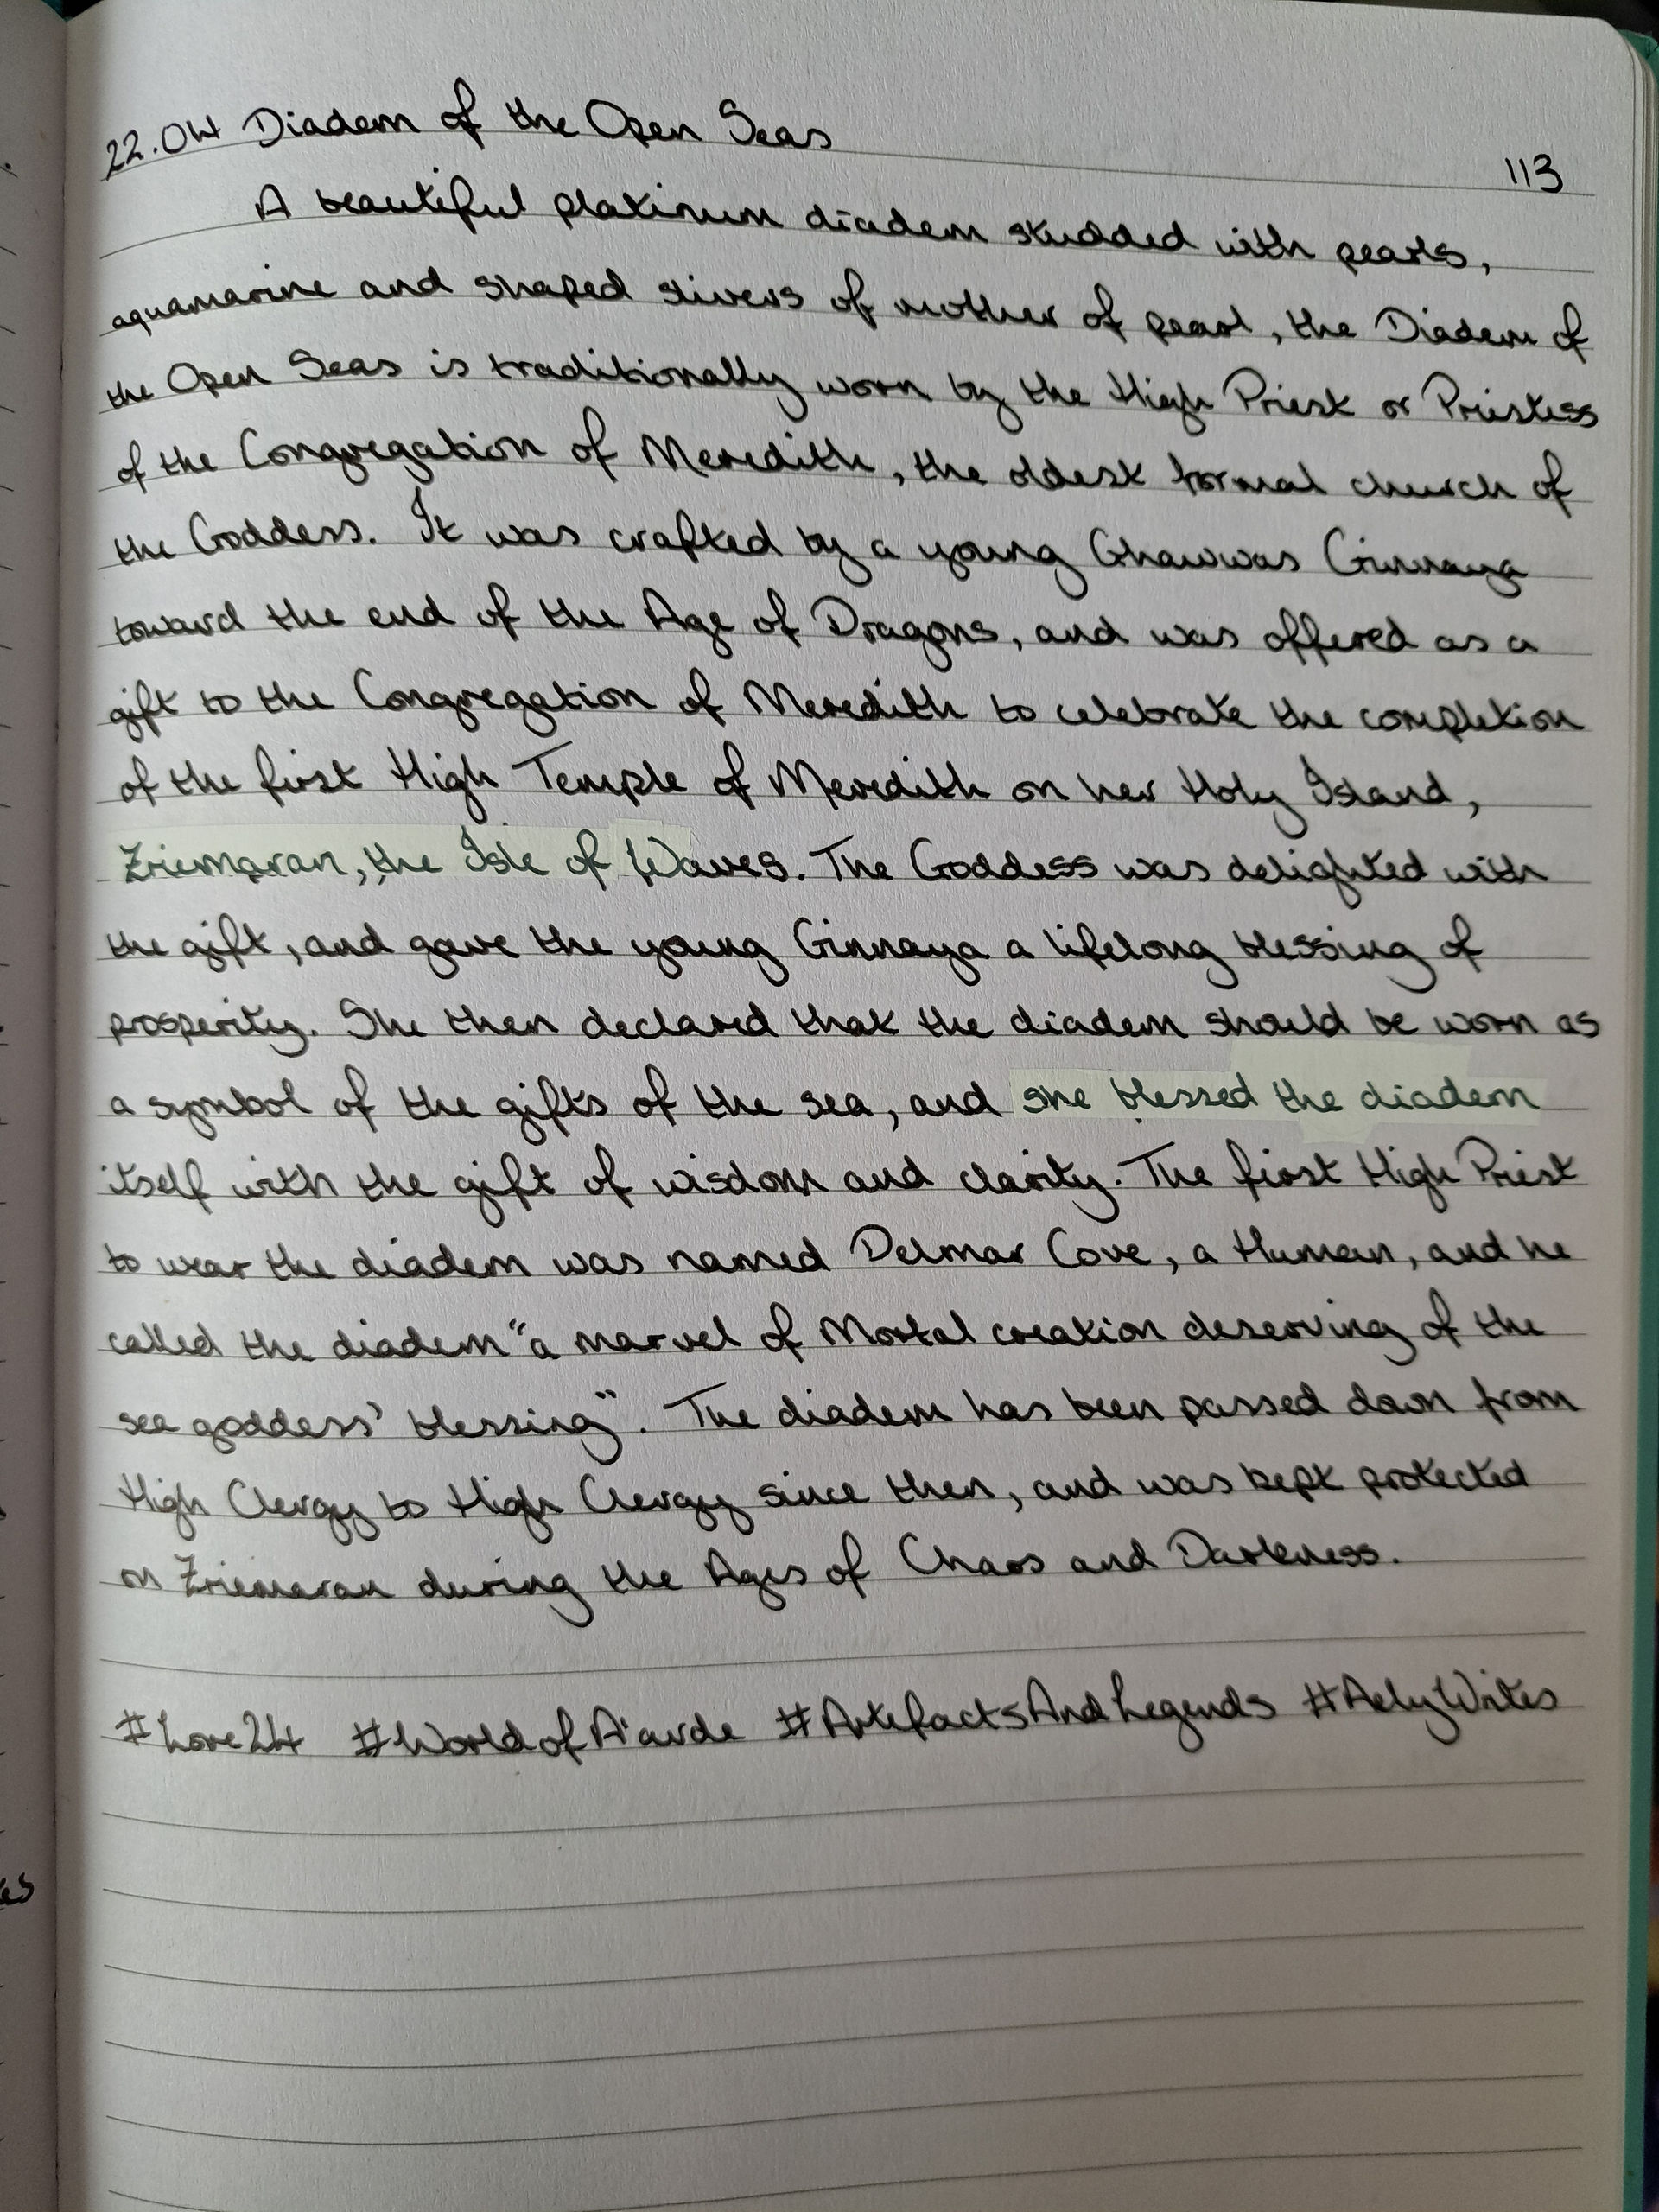 22.04 Diadem of the Open Seas
113
A beautiful platinum diadem studded with pearls,
aquamarine and shaped slivers of mother of pearl, the Diadem of
the Open Seas is traditionally worn by the High Priest or Priestess
of the Congregation of Meredith, the oldest formal church of
the Goddess. It was crafted by a young Ghawwas Ginnaya
toward the end of the Age of Dragons, and was offered as a
gift to the Congregation of Meredith to celebrate the completion
of the first High Temple of Meredith on her Holy Island,
the Isle of Waves. The Goddess was delighted with
the gift, and gave the young Ginnaya a lifelong blessing of
prosperity. She then declared that the diadem should be worn as
a symbol of the gifts of the sea, and she blessed the diadem
itself with the gift of wisdom and clarity. The first High Priest
to wear the diadem was named Delmar Cove, a Human, and he
called the diadem "a marvel of Mortal creation deserving of the
sea goddess' blessing". The diadem has been passed down from
High Clergy to High Clergy since then, and was kept protected
on during the Ages of Chaos and Darkness.
#Lore24 #WorldofA'aurde #ArtefactsAndLegends #AelyWrites